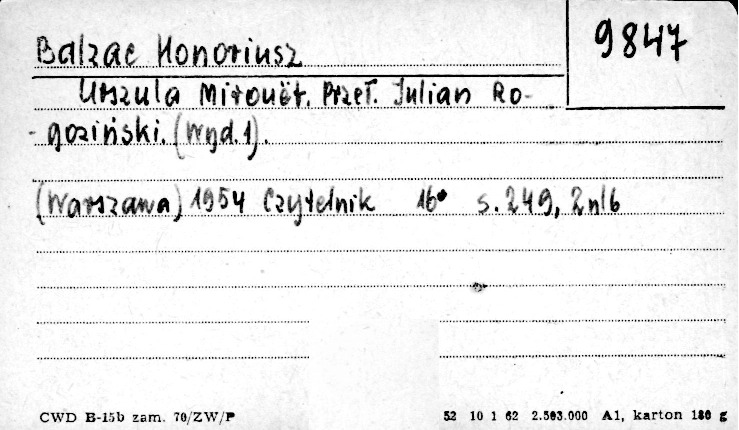 9847
Balzac Honoriusz
Urszula Mirouët. Przeł. Julian Ro-
-goziński. (Wyd. 1).
(Warszawa) 1954 Czytelnik 16° s. 249, 2 nlb
CWD B-15b zam. 70/ZW/P 52 10 1 62 2.503.000 A1, karton 180 g